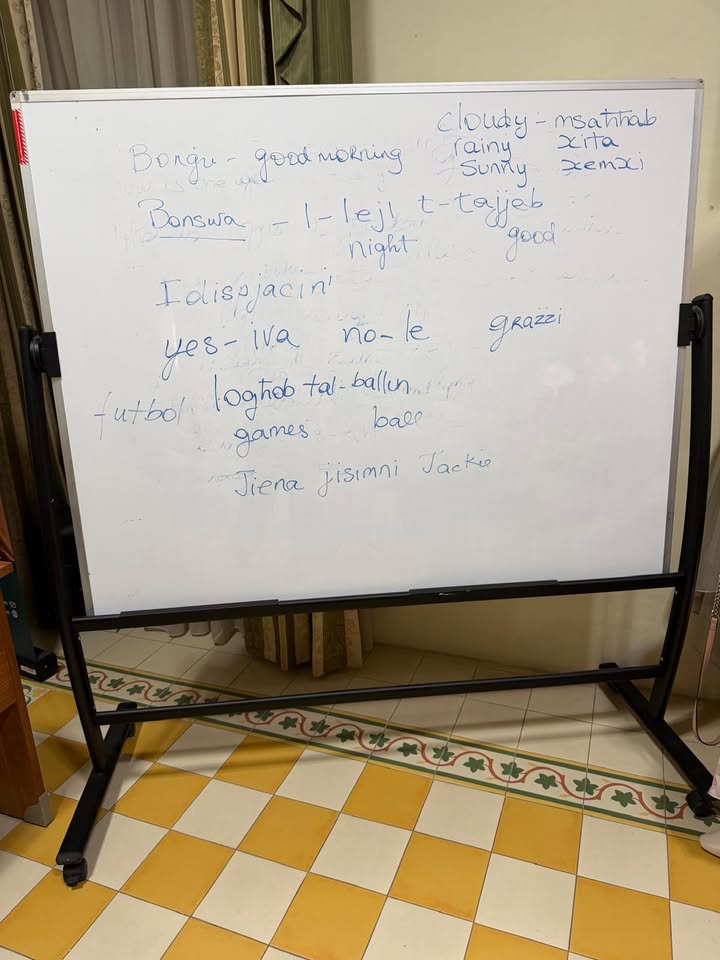 cloudy - msaħħab
rainy xita
sunny xemxi
Bonġu - good morning
Bonswa - l-lejl t-tajjeb
night good
Idispjaċini
yes - iva no - le grazzi
futbol logħob tal-ballun
games ball
Jiena jisimni Jackie